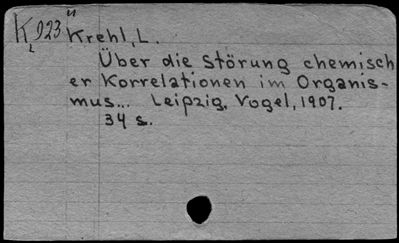 K 923 " Krehl, L.
Über die Störung chemisch
er Korrelationen im Organis-
mus... Leipzig, Vogel, 1907.
34 s.